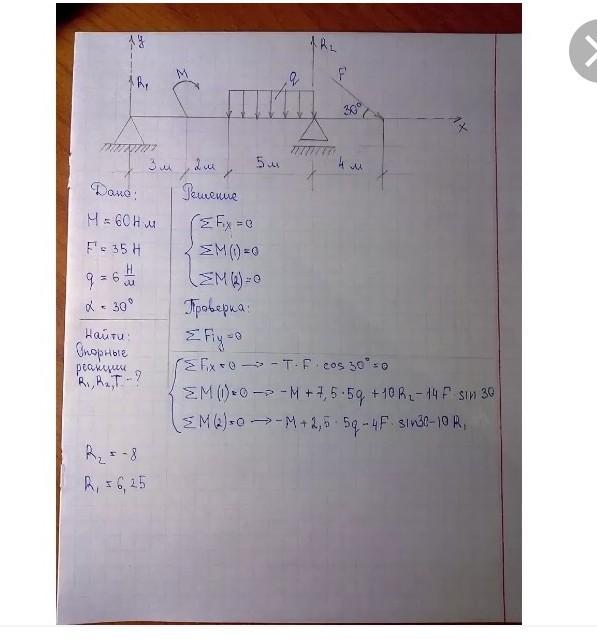 y
R₁
M
q
R₂
F
30°
x
3м 2м 5м 4м
Дано:
M = 60 Н м
F = 35 Н
q = 6 Н/м
α = 30°
Найти:
Опорные
реакции
R₁, R₂, T - ?
R₂ = -8
R₁ = 6,25
Решение
ΣFix = 0
ΣM(1) = 0
ΣM(2) = 0
Проверка:
ΣFiy = 0
ΣFix = 0 → -T·F·cos 30° = 0
ΣM(1) = 0 → -M + 7,5·5q + 10R₂ - 14F·sin 30
ΣM(2) = 0 → -M + 2,5·5q - 4F·sin30 - 10R₁